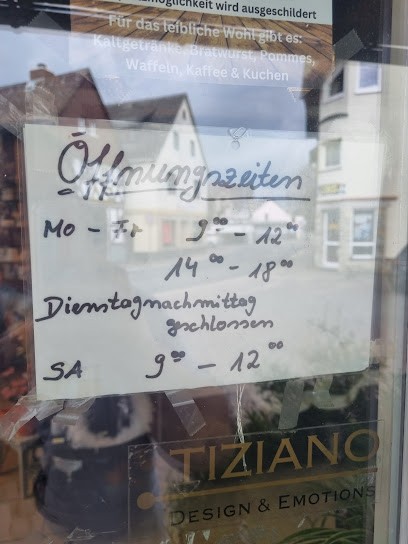 wird ausgeschildert
Für das leibliche Wohl gibt es:
Kaltgetränke, Bratwurst, Pommes,
Waffeln, Kaffee & Kuchen
Öffnungszeiten
Mo - Fr 9⁰⁰ - 12⁰⁰
14⁰⁰ - 18⁰⁰
Dienstagnachmittag
geschlossen
SA 9⁰⁰ - 12⁰⁰
TIZIANO
DESIGN & EMOTIONS